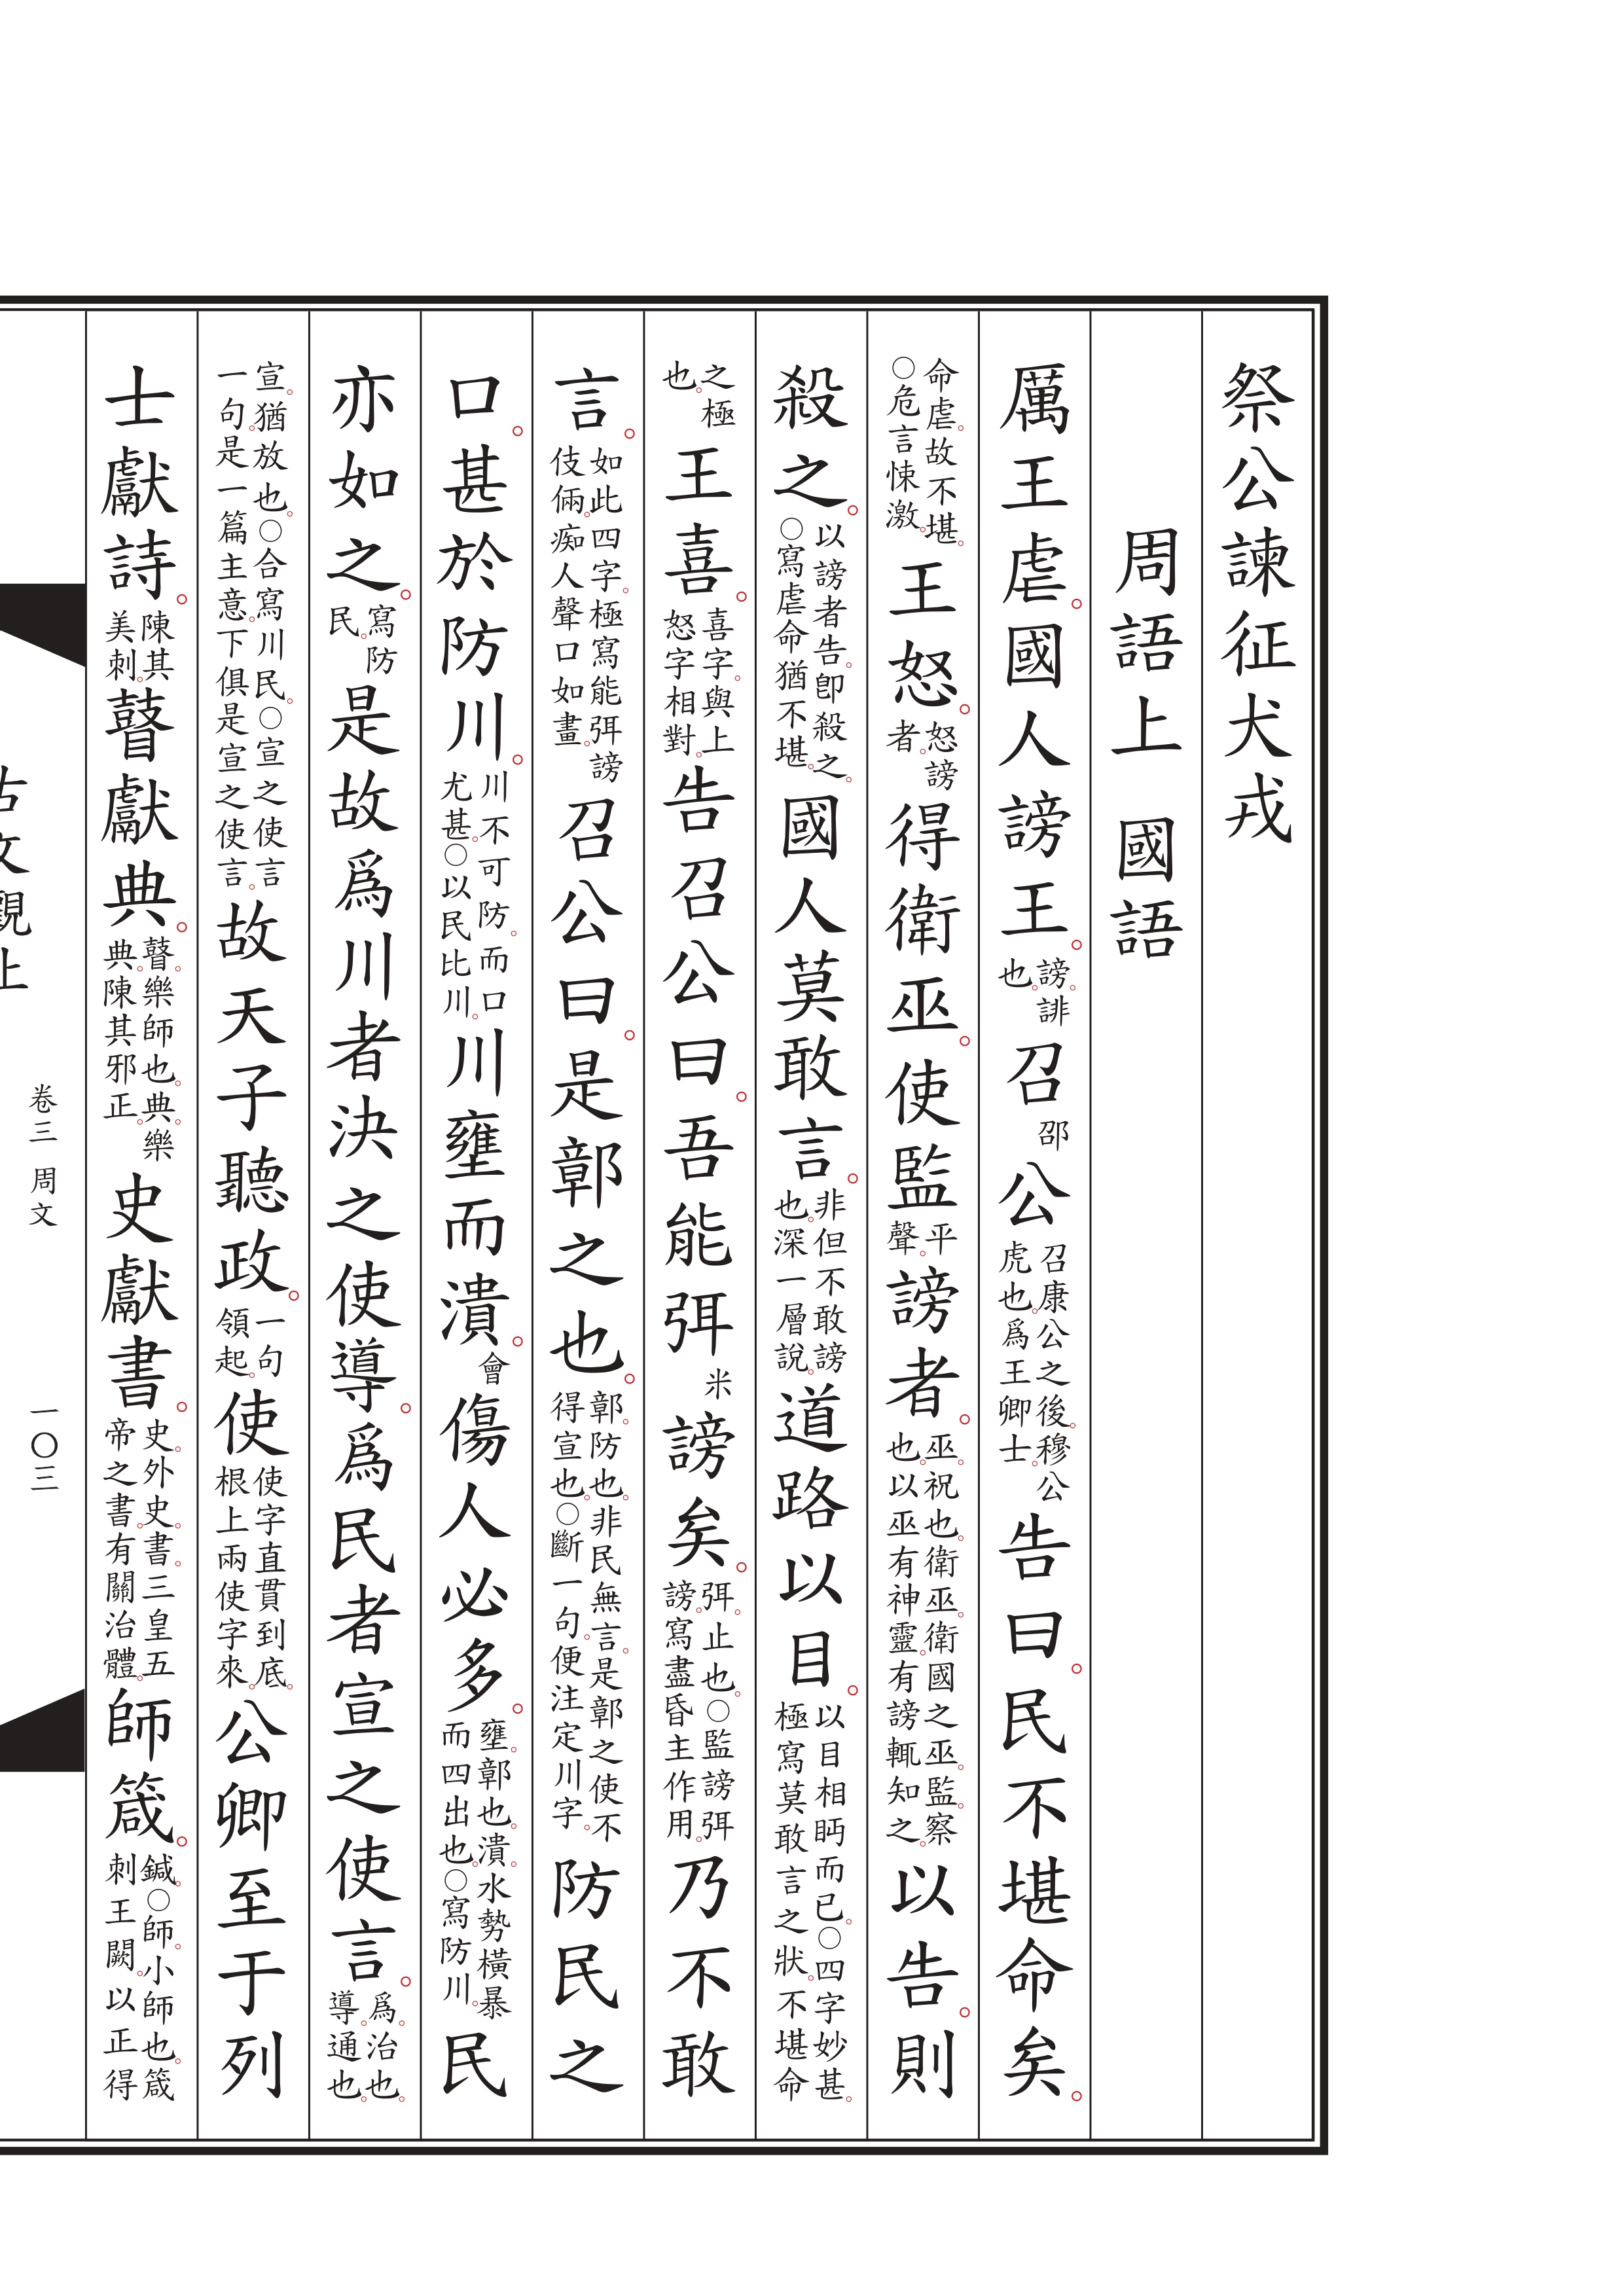 祭公諫征犬戎
周語上　國語
厲王虐。國人謗王。謗。誹也。召邵公召康公之後。穆公虎也。爲王卿士。告曰。民不堪命矣。
命虐。故不堪。〇危言悚激。王怒。怒謗者。得衛巫。使監平聲。謗者。巫。祝也。衛巫。衛國之巫。監。察也。以巫有神靈。有謗輒知之。以告。則
殺之。以謗者告。卽殺之。〇寫虐命猶不堪。國人莫敢言。非但不敢謗也。深一層說。道路以目。以目相眄而已。〇四字妙甚。極寫莫敢言之狀。不堪命
之極也。王喜。喜字。與上怒字相對。告召公曰。吾能弭米謗矣。弭。止也。〇監謗弭謗。寫盡昏主作用。乃不敢
言。如此四字。極寫能弭謗伎倆。痴人聲口如畫。召公曰。是鄣之也。鄣。防也。非民無言。是鄣之使不得宣也。〇斷一句。便注定川字。防民之
口。甚於防川。川不可防。而口尤甚。〇以民比川。川壅而潰。會傷人必多。壅。鄣也。潰。水勢橫暴而四出也。〇寫防川。民
亦如之。寫防民。是故爲川者決之使導。爲民者宣之使言。爲。治也。導。通也。
宣。猶放也。〇合寫川民。〇宣之使言一句。是一篇主意。下俱是宣之使言。故天子聽政。一句領起。使使字直貫到底。根上兩使字來。公卿至于列
士獻詩。陳其美刺。瞽獻典。瞽。樂師也。典。樂典。陳其邪正。史獻書。史。外史。書。三皇五帝之書。有關治體。師箴。鍼。〇師。小師也。箴刺王闕。以正得
卷三　周文　一〇三